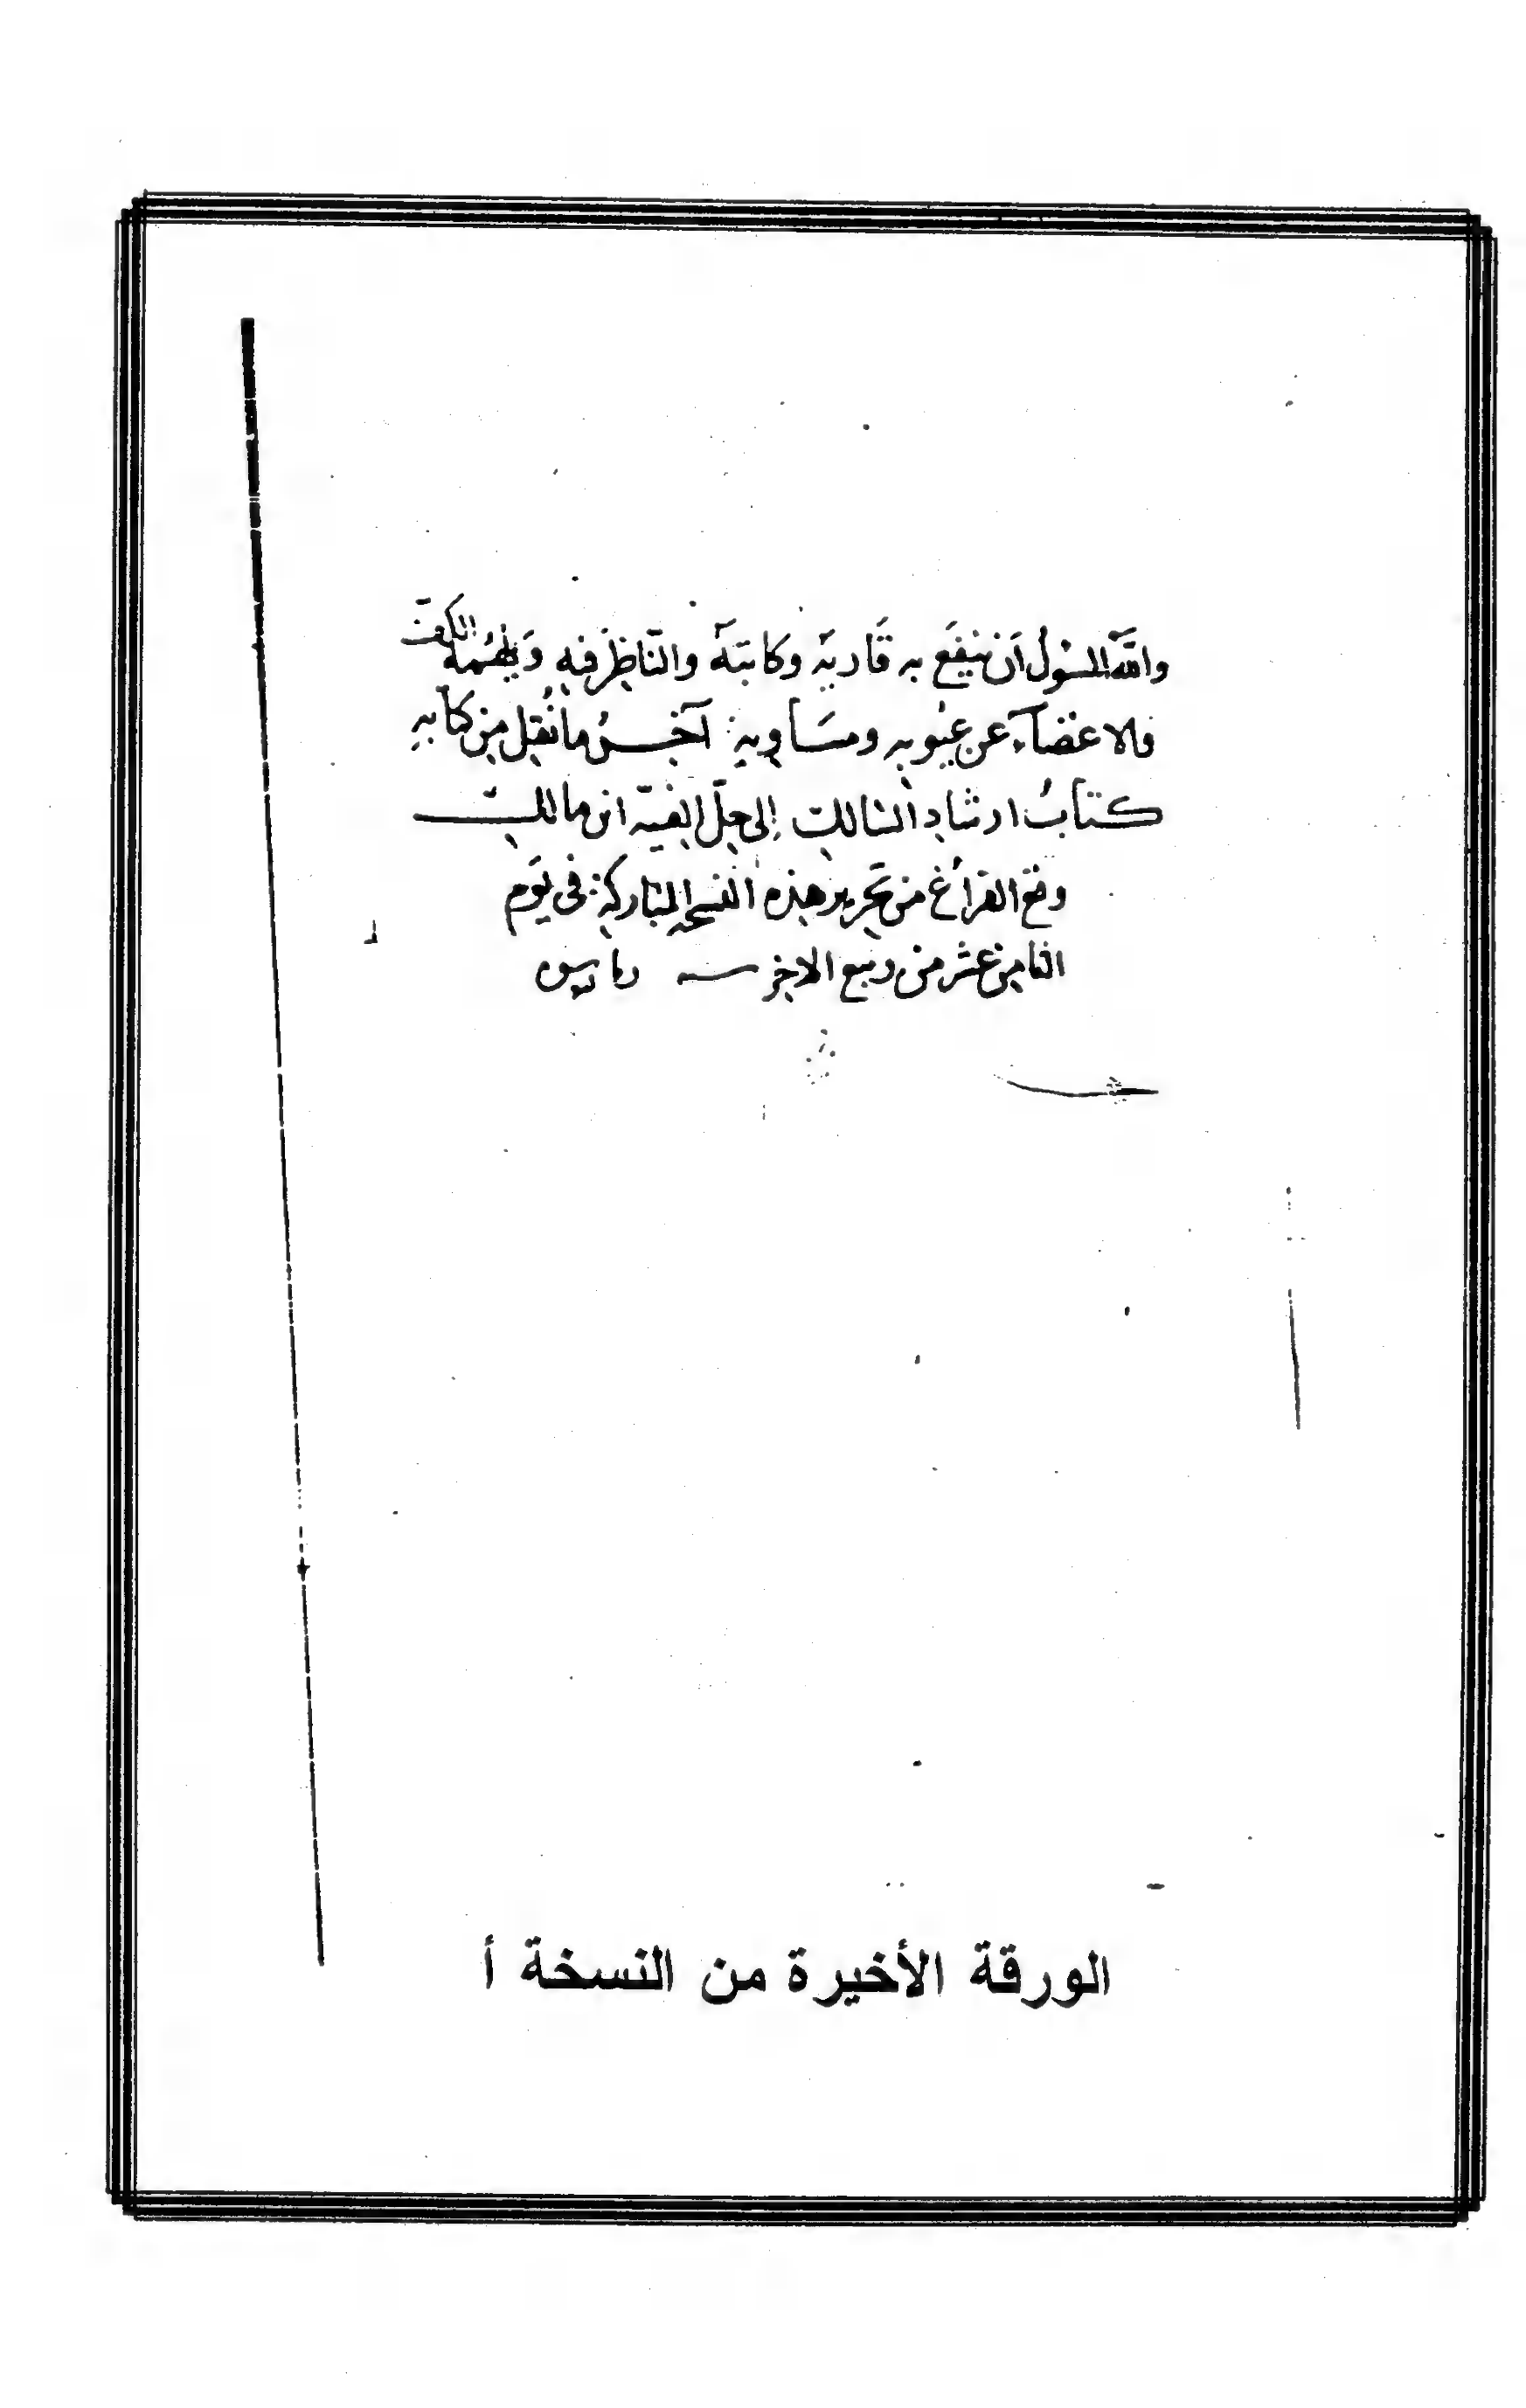 والله المسؤل أن ينفع به قاريه وكاتبه والناظر فيه ويلهمه الكف
والاغضآء عن عيوبه ومساويه آخر ما نُقِل من كتابه
كتابُ ارشاد السالك إلى حلّ الفية ابن مالك
وقع الفراغ من تحرير هذه النسخة المباركة في يوم
الثامن عشر من ربيع الاخر سنه
الورقة الأخيرة من النسخة أ